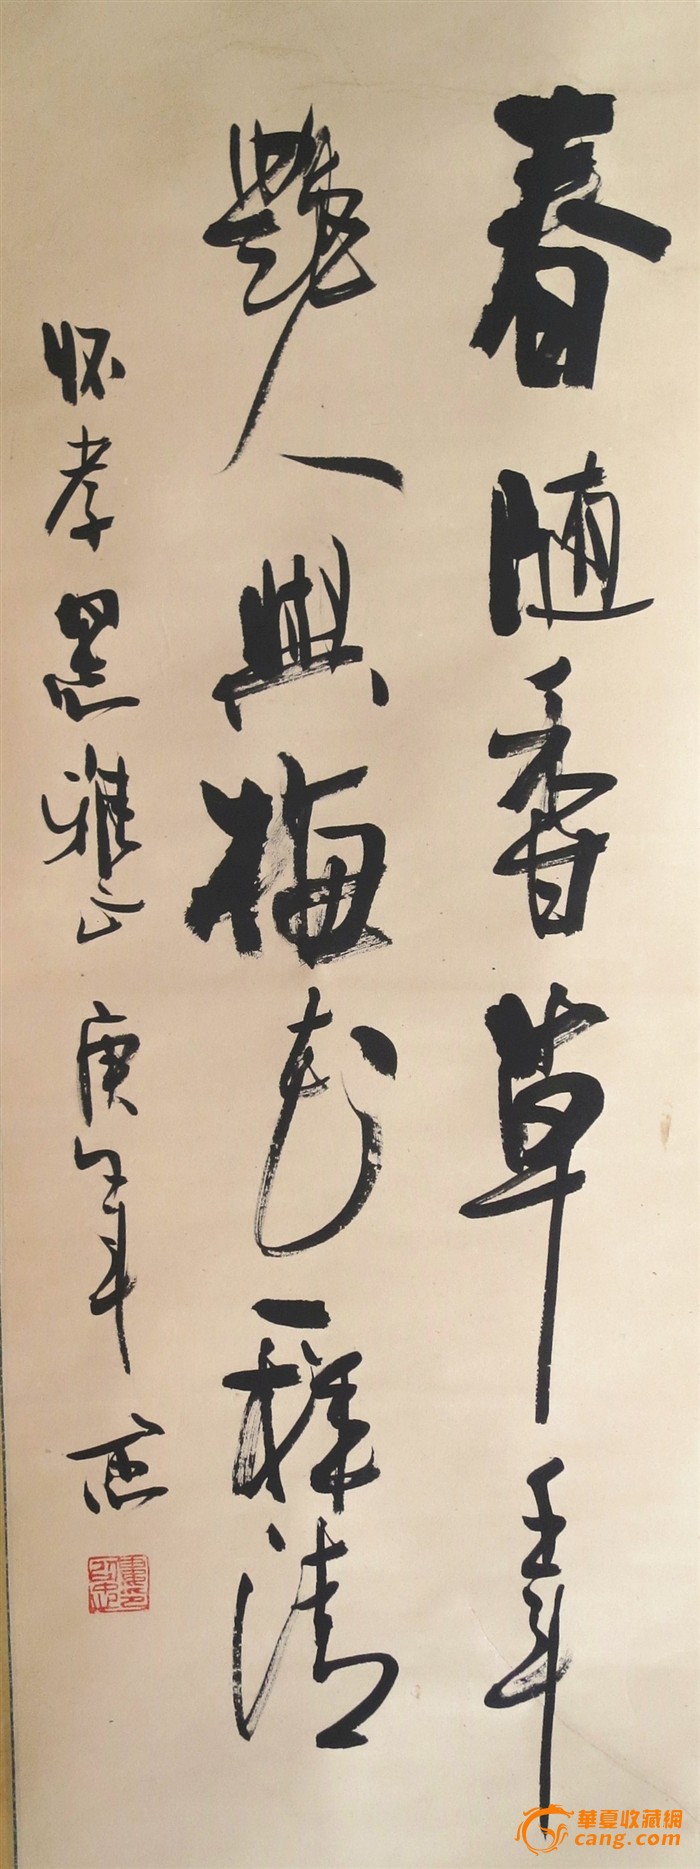 春随香草年年
艷人與梅花一種清
怀孝 雅正 庚午年
華夏收藏網
cang.com